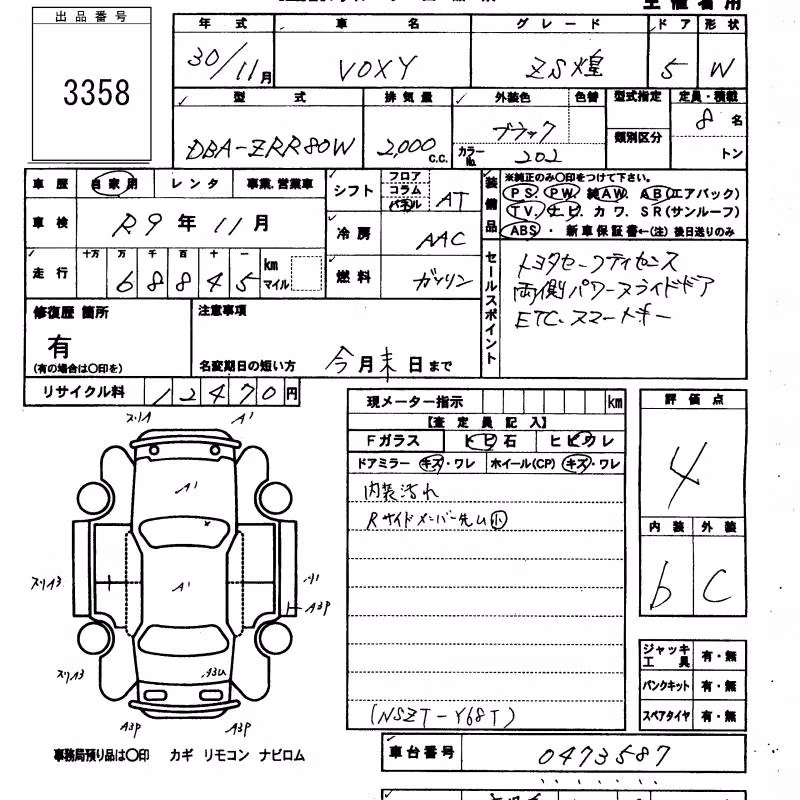 出品番号
3358
年式 車名 グレード ドア 形状
30/11月 VOXY ZS煌 5 W
型式 排気量 外装色 色替 型式指定 定員・積載
DBA-ZRR80W 2,000 c.c. ブラック 類別区分 8名
カラーNo. 202 トン
車歴 自家用 レンタ 事業、営業車
シフト フロア コラム パネル AT
装備品 ※純正のみ〇印をつけて下さい。
PS. PW. 純AW. AB(エアバック)
車検 R9年11月
TV. ナビ. カワ. SR(サンルーフ)
冷房 AAC
ABS・新車保証書←(注)後日送りのみ
走行 十万 万 千 百 十 一 km マイル
68845
燃料 ガソリン
セールスポイント
トヨタセーフティセンス
両側パワースライドドア
ETC. スマートキー
修復歴 箇所
有
(有の場合は〇印を)
注意事項
名変期日の短い方 今月末日まで
リサイクル料 12470円
現メーター指示 km
【査定員記入】
Fガラス トビ石 ヒビワレ
ドアミラー キズ・ワレ ホイール(CP) キズ・ワレ
内装汚れ
Rサイドメンバー先ム小
(NSZT-Y68T)
評価点
4
内装 外装
b C
スリ A A'
A'
A'
スリA3 A1
A3P
スリA3 A3U
A3P A3P
事務局預り品は〇印 カギ リモコン ナビロム
ジャッキ工具 有・無
パンクキット 有・無
スペアタイヤ 有・無
車台番号 0473587